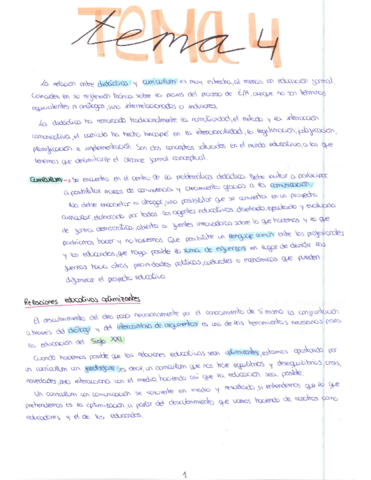 TEMA 4
tema 4
La relación entre didáctica y curriculum es muy estrecha, al menos en educación formal
Coinciden en su reflexión teórica sobre la praxis del proceso de E/A, aunque no son términos
equivalentes ni análogos, sino interrelacionados o inclusores.
La didáctica ha remarcado tradicionalmente la normatividad, el método y la interacción
comunicativa, el currículo ha hecho hincapié en la intencionalidad, la legitimación, planificación
e implementación. Son dos conceptos situados en el mundo educativo a los que
tenemos que delimitarle el alcance formal conceptual.
Curriculum → Se encuentra en el centro de la problemática didáctica. Debe invitar a participar
a posibilitar marcos de convivencia y crecimiento gracias a la comunicación.
No debe encorsetar ni ahogar, sino posibilitar que se convierta en un proyecto
curricular elaborado por todos los agentes educativos diseñado, ejecutado y evaluado
de forma democrática, abierto a gentes innovadoras sobre lo que hacemos y lo que
podríamos hacer y no hacemos. Que posibilite un lenguaje común entre los profesionales
y los educandos, que haga posible la suma de esfuerzos en lugar de dividir las
fuerzas hacia otras prioridades políticas, culturales o económicas que pueden
distorsionar el proyecto educativo
Relaciones educativas optimizantes
El descubrimiento del otro pasa necesariamente por el conocimiento de sí mismo. La comunicación
a través del diálogo y del intercambio de argumentos es una de las herramientas necesarias para
la educación del Siglo XXI.
Cuando hacemos posible que las relaciones educativas sean optimizantes, estamos apostando por
un currículum con pedagogía, es decir, un currículum que nos trae equilibrios y desequilibrios, crisis,
novedades, pero interacciona con el medio, haciendo así que la educación sea posible.
Un currículum con comunicación se convierte en medio y resultado, si entendemos que lo que
pretendemos es la optimización a partir del descubrimiento que vamos haciendo de nosotros como
educadores y el de los educandos.
1